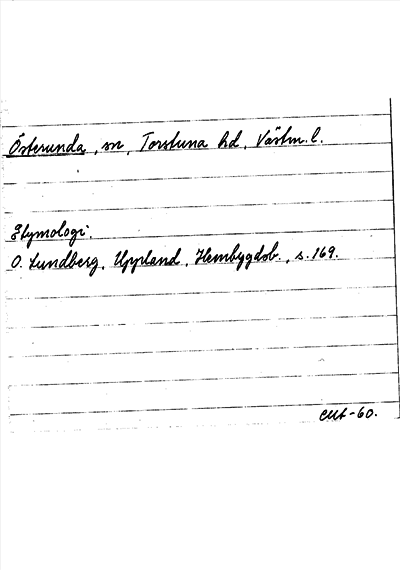 Österunda, sn, Torstuna hd, Västm. l.
Etymologi:
O. Lundberg, Uppland, Hembygdsb., s. 169.
-60.